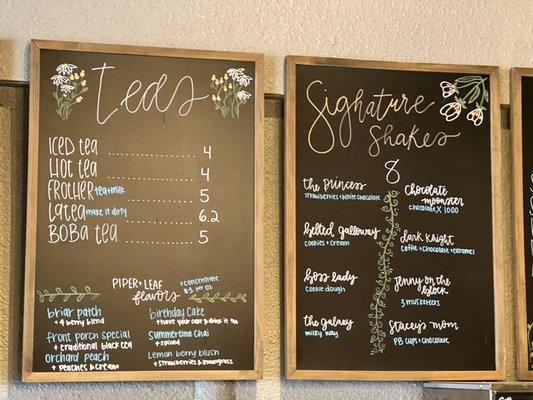 teas
Iced tea 4
Hot tea 4
Frother tea+milk 5
Latea make it dirty 6.2
Boba tea 5
Piper + Leaf
flavors
+ concentrate
briar patch
+ 4 berry blend
front porch special
+ traditional black tea
orchard peach
+ peaches & cream
birthday cake
+ have your cake & drink it too
Summertime Chai
+ spiced
Lemon berry blush
+ strawberries & lemongrass
Signature
Shakes
8
the princess
strawberries + white chocolate
belted galloway
cookies + cream
boss lady
cookie dough
the galaxy
milky way
chocolate
moonster
chocolate x 1000
dark knight
coffee + chocolate + caramel
Jenny on the
block
3 musketeers
Stacey's mom
PB cups + chocolate